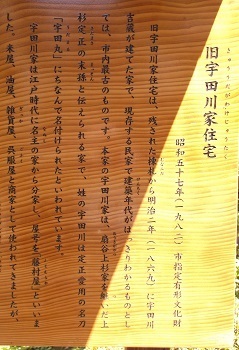 きゅううだがわけじゅうたく
旧宇田川家住宅
昭和五十七年(一九八二)市指定有形文化財
旧宇田川家住宅は、残された棟札から明治二年(一八六九)に宇田川
吉蔵が建てた家で、現存する民家で建築年代がはっきりわかるものとし
ては、市内最古のものです。本家の宇田川家は、扇谷上杉家を継いだ上
杉定正の末孫と伝えられる家で、姓の宇田川は定正愛用の名刀
「宇田丸」にちなんで名付けられたといわれています。
宇田川家は江戸時代に名主の家から分家し、屋号を「藤村屋」といいま
した。米屋、油屋、雑貨屋、呉服屋と商家として使われてきましたが、